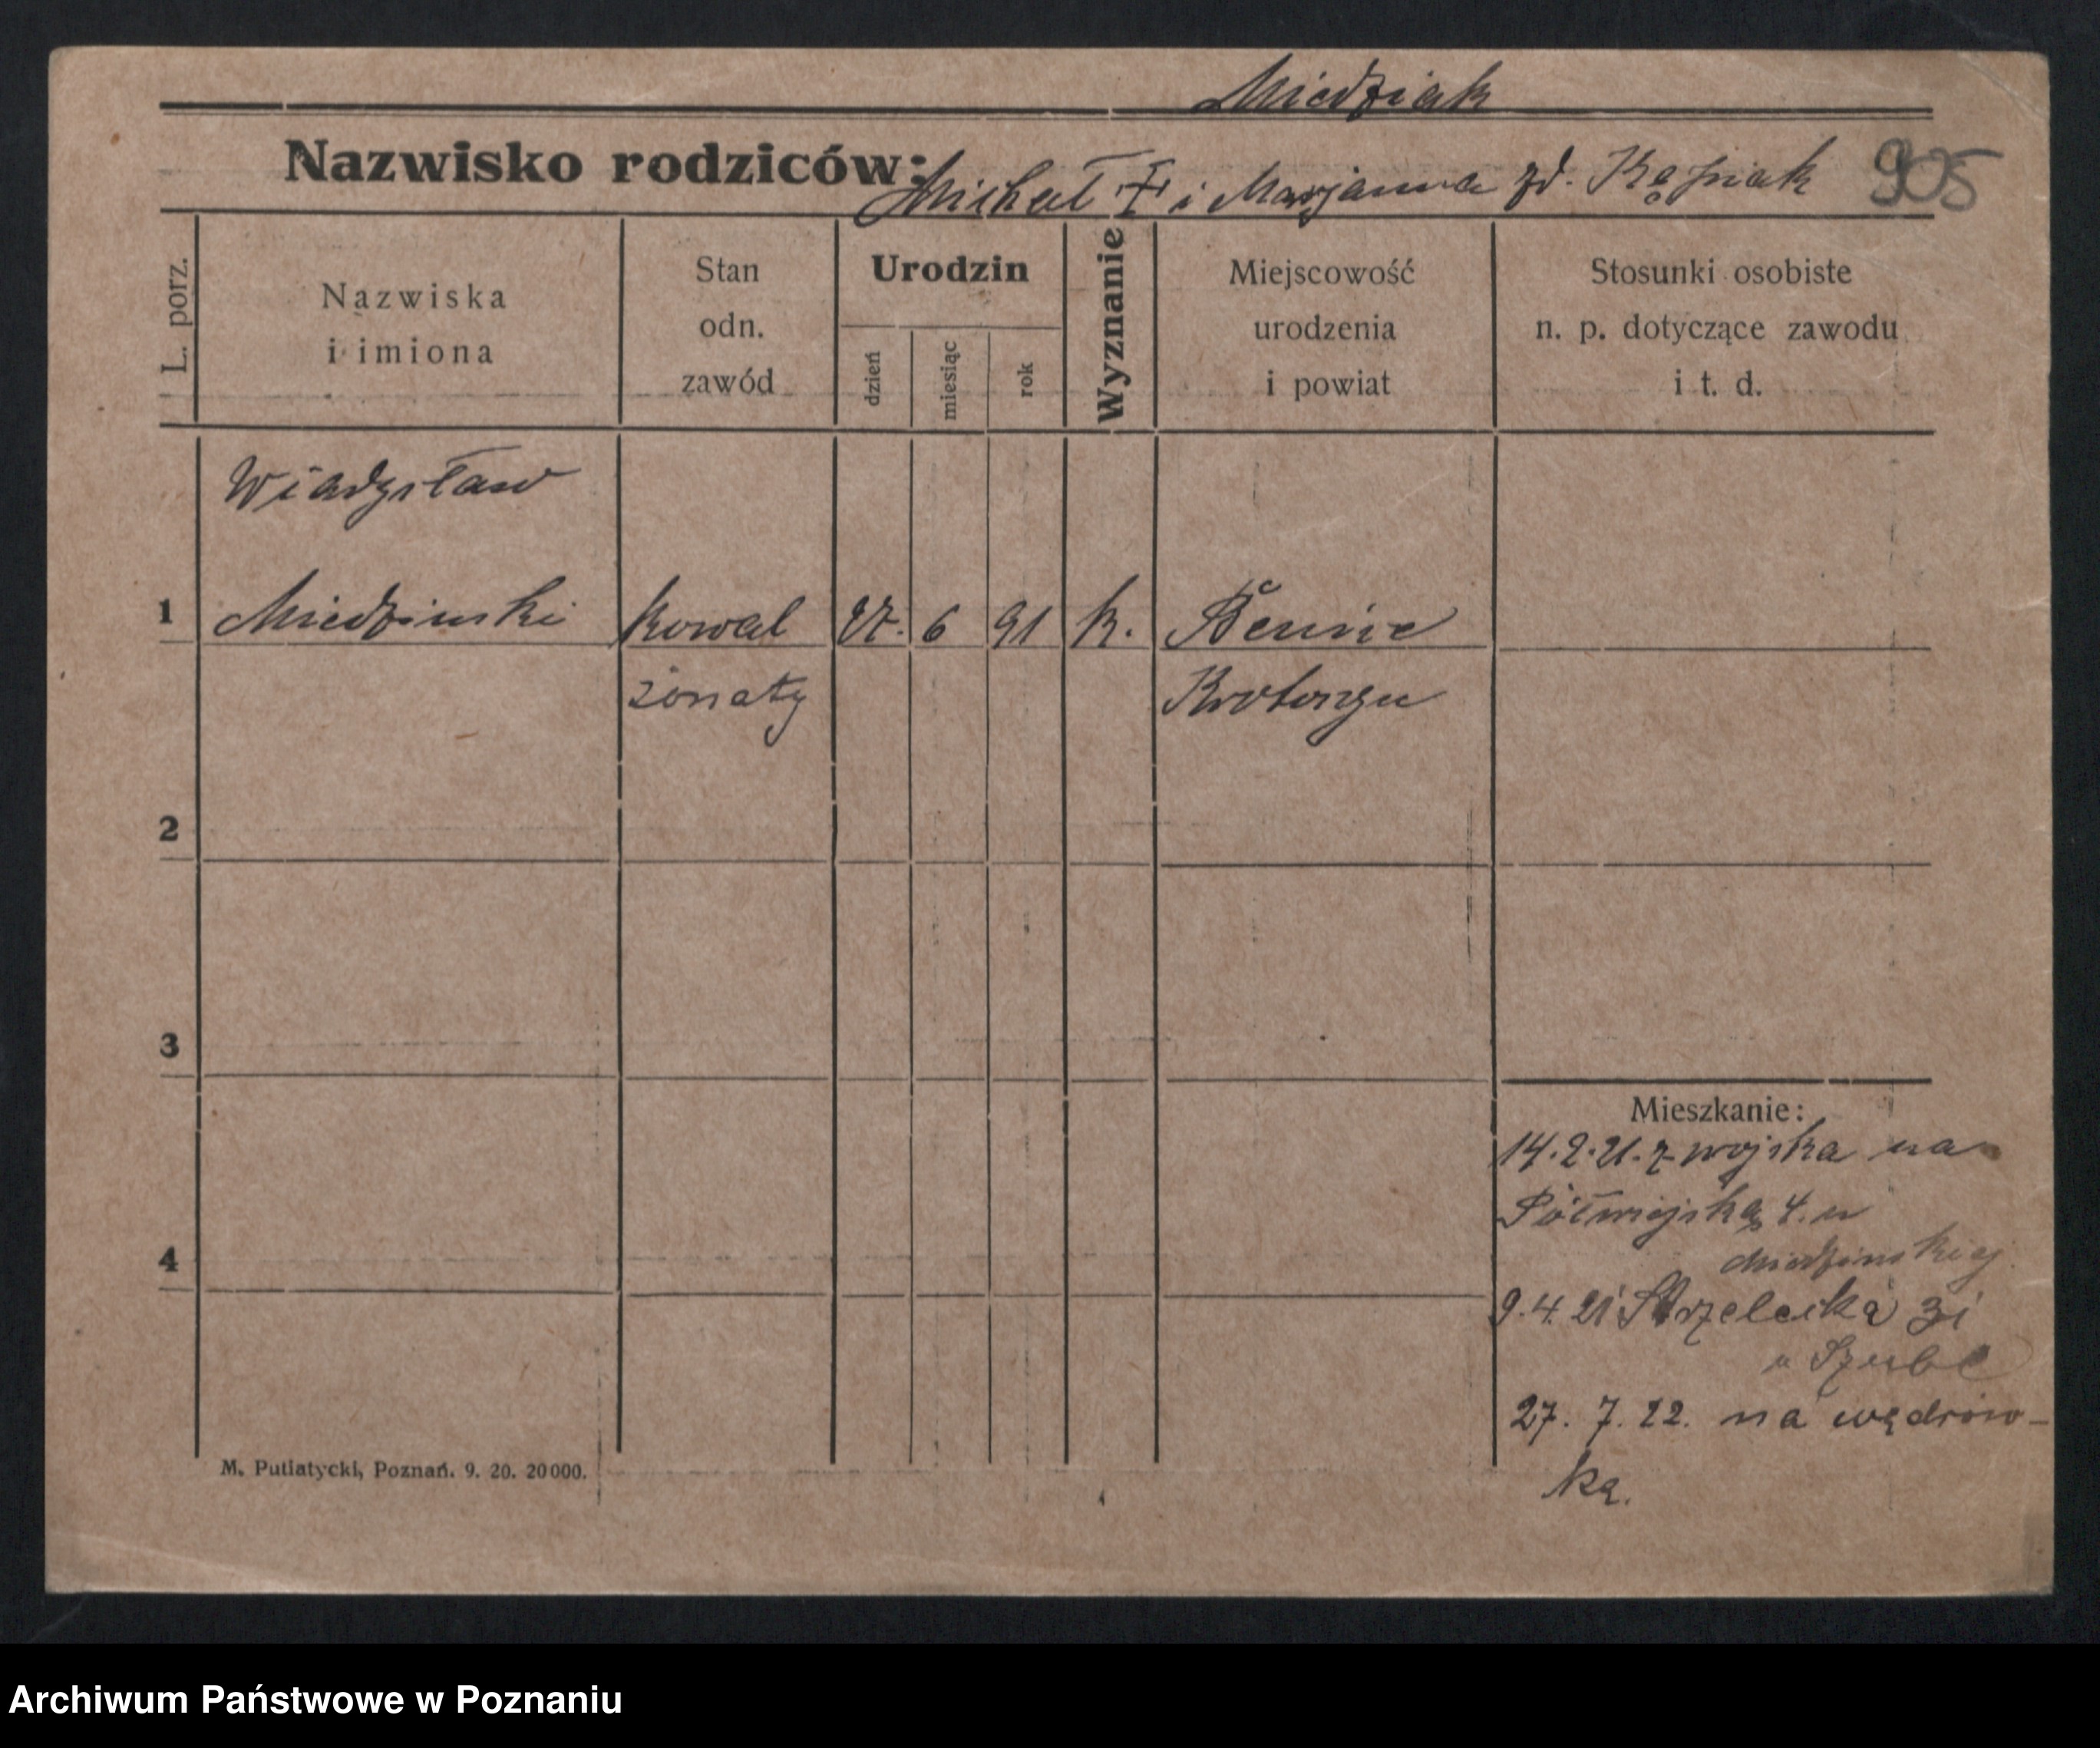 Miedziak
Nazwisko rodziców: Michał i Marjanna zd. 905
L. porz.
Nazwiska
i imiona
Stan
odn.
zawód
Urodzin
dzień
miesiąc
rok
Wyznanie
Miejscowość
urodzenia
i powiat
Stosunki osobiste
n. p. dotyczące zawodu
i t. d.
Władysław
1 Miedzinski kowal 27. 6 91 k.
żonaty
2
3
4
Mieszkanie:
14.2.21. z wojska na
Półwiejską 4. u
Miedzinskiej
9.4.21 Strzelecka 31
u
27. 7. 22. na wędrów-
kę.
M. Putiatycki, Poznań. 9. 20. 20000.
Archiwum Państwowe w Poznaniu